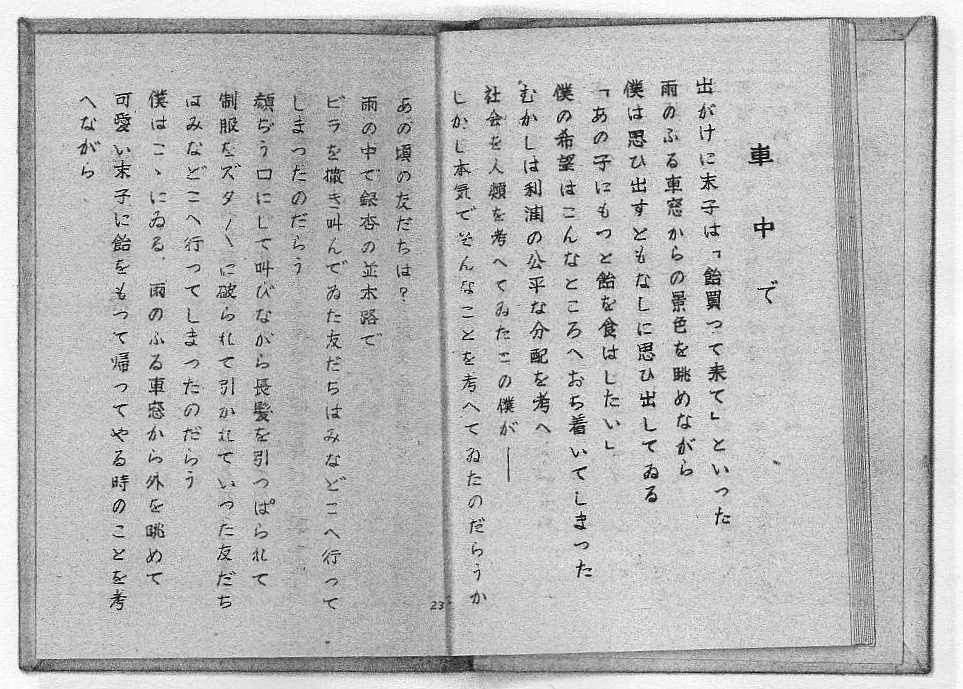 車中で
出がけに末子は「飴買つて来て」といつた
雨のふる車窓からの景色を眺めながら
僕は思ひ出すともなしに思ひ出してゐる
「あの子にもつと飴を食はしたい」
僕の希望はこんなところへおち着いてしまつた
むかしは利潤の公平な分配を考へ
社会を人類を考へてゐたこの僕が――
しかし本気でそんなことを考へてゐたのだらうか
あの頃の友だちは?
雨の中で銀杏の並木路で
ビラを撒き叫んでゐた友だちはみなどこへ行つて
しまつたのだらう
顔ぢう口にして叫びながら長髪を引つぱられて
制服をズタ〱に破られて引かれていつた友だち
はみなどこへ行つてしまつたのだらう
僕はこゝにゐる、雨のふる車窓から外を眺めて
可愛い末子に飴をもつて帰つてやる時のことを考
へながら
23